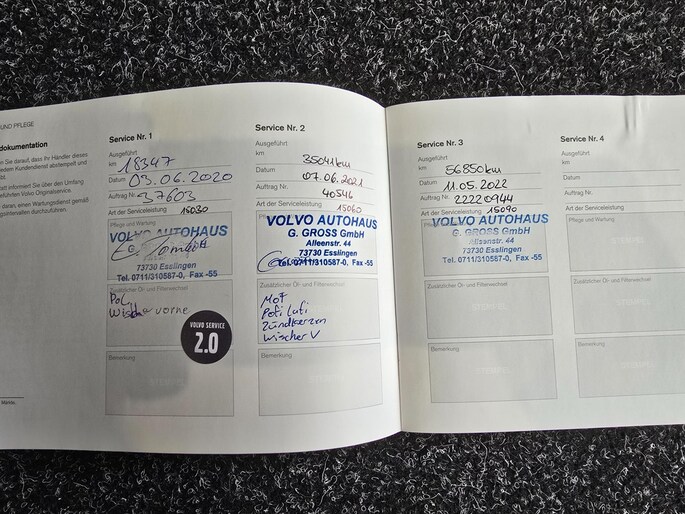 UND PFLEGE
dokumentation
en Sie darauf, dass Ihr Händler dieses
jedem Kundendienst abstempelt und
tatt informiert Sie über den Umfang
führten Volvo Originalservice.
daran, einen Wartungsdienst gemäß
gsintervallen durchzuführen.
Service Nr. 1
Ausgeführt
km 18347
Datum 03.06.2020
Auftrag Nr. 37603
Art der Serviceleistung 15030
VOLVO AUTOHAUS
73730 Esslingen
Tel. 0711/310587-0, Fax -55
Zusätzlicher Öl- und Filterwechsel
PoL
Wischer vorne
VOLVO SERVICE
2.0
Bemerkung
Service Nr. 2
Ausgeführt
km 35041km
Datum 07.06.2021
Auftrag Nr. 40546
Art der Serviceleistung 15060
VOLVO AUTOHAUS
G. GROSS GmbH
Alleenstr. 44
73730 Esslingen
Tel. 0711/310587-0, Fax -55
Zusätzlicher Öl- und Filterwechsel
MoF
Pofi Lufi
Zündkerzen
Wischer V
Bemerkung
Service Nr. 3
Ausgeführt
km 56850km
Datum 11.05.2022
Auftrag Nr. 22220944
Art der Serviceleistung 15090
Pflege und Wartung
VOLVO AUTOHAUS
G. GROSS GmbH
Alleenstr. 44
73730 Esslingen
Tel. 0711/310587-0, Fax -55
Zusätzlicher Öl- und Filterwechsel
STEMPEL
Bemerkung
STEMPEL
Service Nr. 4
Ausgeführt
km
Datum
Auftrag Nr.
Art der Serviceleistung
Pflege und Wartung
Zusätzlicher Öl- und Filterwechsel
Bemerkung